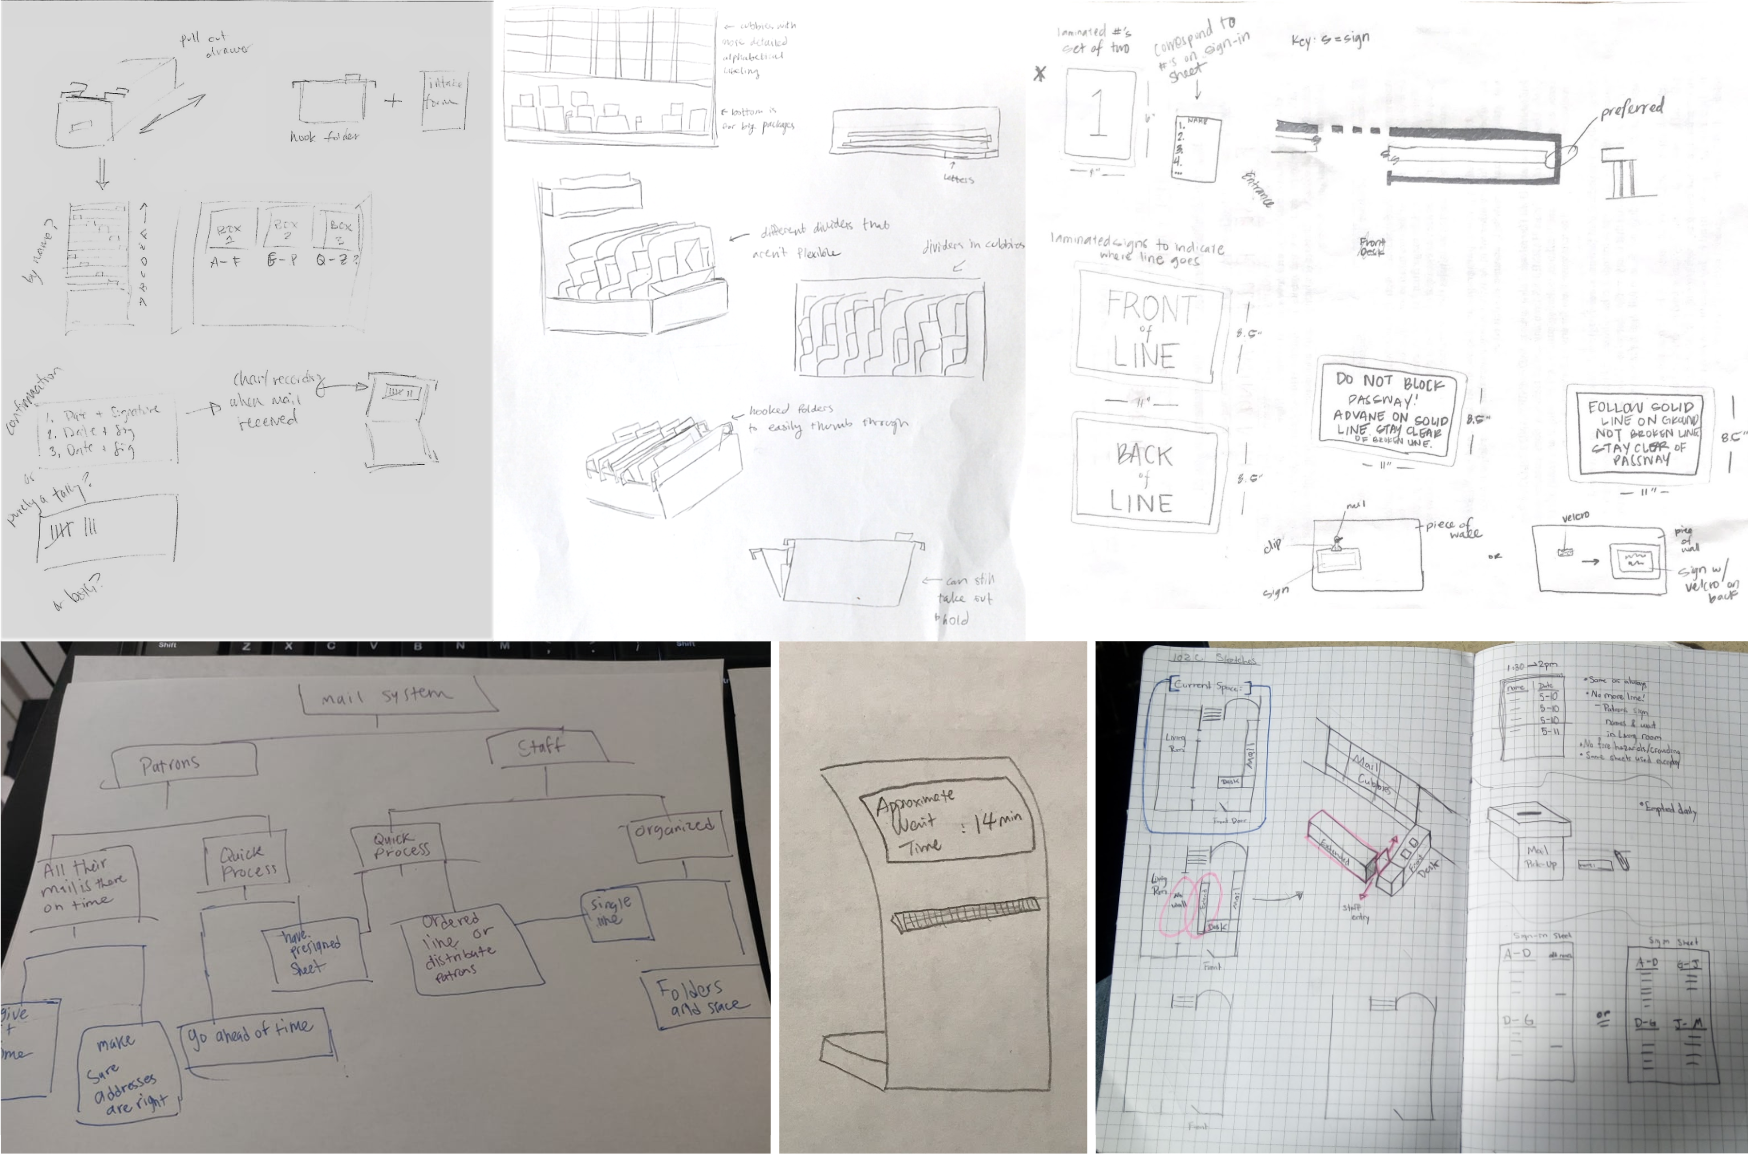 pull out
drawer
hook folder
+
intake
form
by name?
BOX
1
BOX
2
BOX
3
A-F
G-P
Q-Z?
confirmation
1. Date + Signature
2. Date + Sig
3. Date + Sig
or
Purely a tally?
or both?
chart recording
when mail
received
← cubbies with
more detailed
alphabetical
labeling
↑ bottom is
for big packages
letters
different dividers that
arent flexible
dividers in cubbies
hooked folders
to easily thumb through
can still
take out
+ hold
laminated #'s
set of two
correspond to
#'s on sign-in
sheet
Key: S = sign
1
6"
4"
NAME
1.
2.
3.
4.
...
Entrance
preferred
Front
Desk
laminated signs to indicate
where line goes
FRONT
of
LINE
8.5"
11"
BACK
of
LINE
8.5"
DO NOT BLOCK
PASSWAY!
ADVANE ON SOLID
LINE. STAY CLEAR
OF BROKEN LINE.
8.5"
11"
FOLLOW SOLID
LINE ON GROUND
NOT BROKEN LINE
STAY CLEAR OF
PASSWAY
8.5"
11"
nail
clip
sign
piece of
wall
or
velcro
piece
of
wall
sign w/
velcro on
back
Shift
Z X C V B N M , . /
Shift
mail system
Patrons
Staff
All their
mail is there
on time
Quick
Process
Quick
Process
organized
have
presigned
sheet
Ordered
line or
distribute
patrons
single
line
Folders
and space
give
make
sure
addresses
are right
go ahead of time
Approximate
Wait
Time : 14 min
102 C Sketches
Current Space:
Living
Room
Mail
Desk
Front Door
Living
Room
Mail
Desk
Front
Front
Mail
Cubbies
Extended
Front
Desk
Staff
entry
1:30 → 2pm
Name Date
5-10
5-10
5-10
5-11
• Same as always
• No more line!
- Patrons sign
names & wait
in living room
• No fire hazards/crowding
• Same sheets used everyday
• Emptied daily
Mail
Pick-Up
Sign-in Sheet
A-D
D-G
or
Sign Sheet
A-D
G-J
D-G
J-M